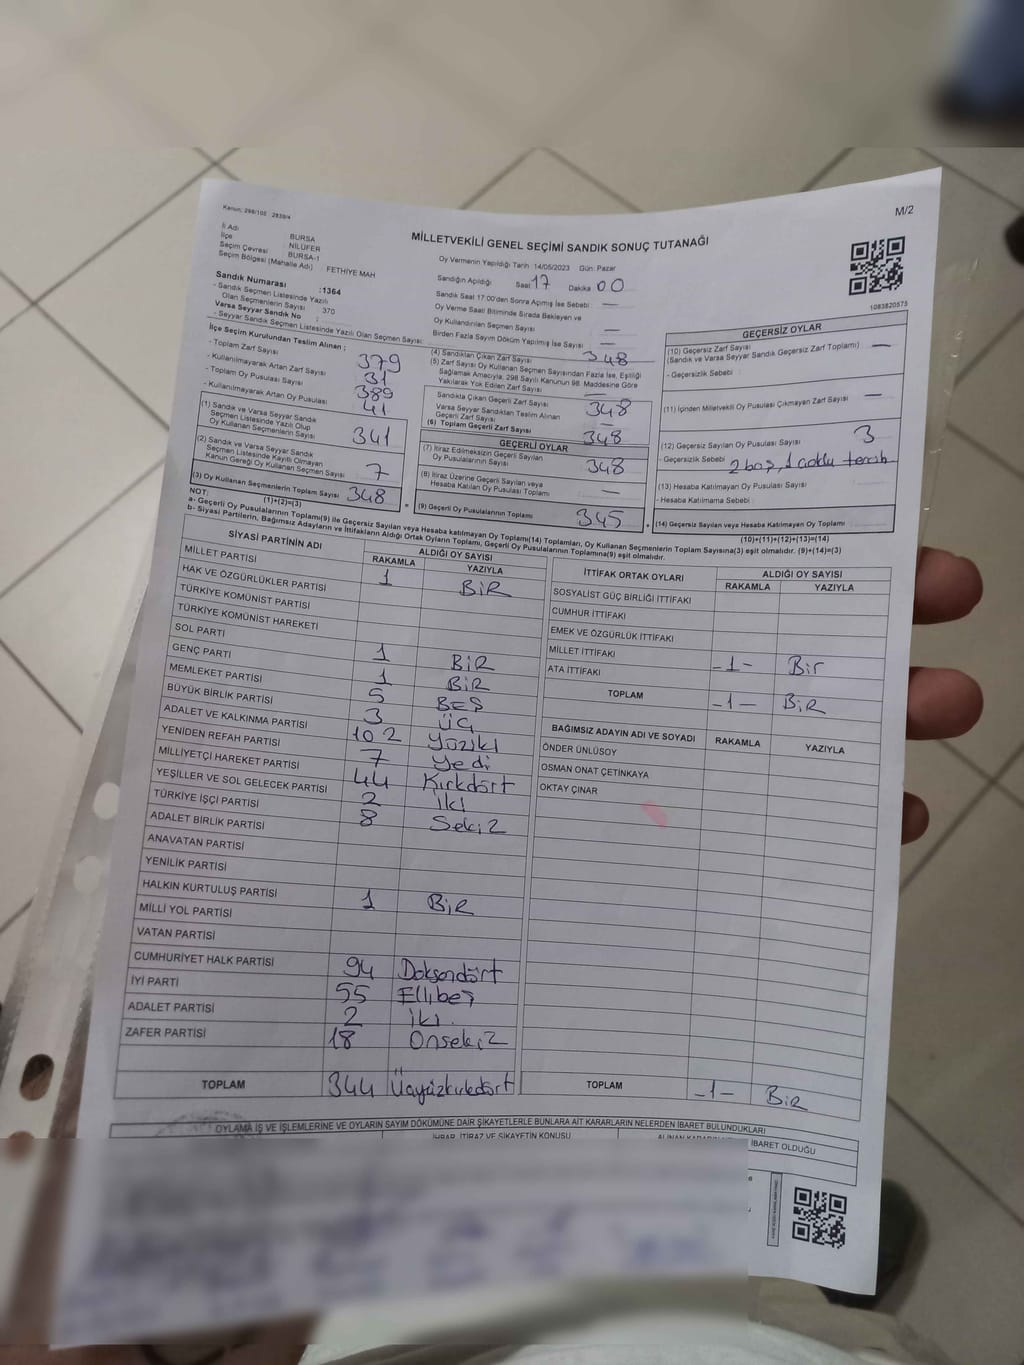 Kanun; 298/105 2839/4
M/2
MİLLETVEKİLİ GENEL SEÇİMİ SANDIK SONUÇ TUTANAĞI
İl Adı : BURSA
İlçe : NİLÜFER
Seçim Çevresi : BURSA-1
Seçim Bölgesi (Mahalle Adı) : FETHİYE MAH
Sandık Numarası :1364
- Sandık Seçmen Listesinde Yazılı
Olan Seçmenlerin Sayısı : 370
Varsa Seyyar Sandık No :
- Seyyar Sandık Seçmen Listesinde Yazılı Olan Seçmen Sayısı:
Oy Vermenin Yapıldığı Tarih 14/05/2023 Gün: Pazar
Sandığın Açıldığı Saat 17 Dakika 00
Sandık Saat 17:00'den Sonra Açımış İse Sebebi : —
Oy Verme Saati Bitiminde Sırada Bekleyen ve
Oy Kullandırılan Seçmen Sayısı : —
Birden Fazla Sayım Döküm Yapılmış İse Sayısı : —
1083820575
İlçe Seçim Kurulundan Teslim Alınan ;
- Toplam Zarf Sayısı 379
- Kullanılmayarak Artan Zarf Sayısı 31
- Toplam Oy Pusulası Sayısı 389
- Kullanılmayarak Artan Oy Pusulası 41
(1) Sandık ve Varsa Seyyar Sandık
Seçmen Listesinde Yazılı Olup
Oy Kullanan Seçmenlerin Sayısı 341
(2) Sandık ve Varsa Seyyar Sandık
Seçmen Listesinde Kayıtlı Olmayan
Kanun Gereği Oy Kullanan Seçmen Sayısı 7
(3) Oy Kullanan Seçmenlerin Toplam Sayısı 348
(1)+(2)=(3)
(4) Sandıktan Çıkan Zarf Sayısı 348
(5) Zarf Sayısı Oy Kullanan Seçmen Sayısından Fazla İse, Eşitliği
Sağlamak Amacıyla, 298 Sayılı Kanunun 98. Maddesine Göre
Yakılarak Yok Edilen Zarf Sayısı —
Sandıkta Çıkan Geçerli Zarf Sayısı 348
Varsa Seyyar Sandıktan Teslim Alınan
Geçerli Zarf Sayısı —
(6) Toplam Geçerli Zarf Sayısı 348
GEÇERLİ OYLAR
(7) İtiraz Edilmeksizin Geçerli Sayılan
Oy Pusulalarının Sayısı 348
(8) İtiraz Üzerine Geçerli Sayılan veya
Hesaba Katılan Oy Pusulası Toplamı —
(9) Geçerli Oy Pusulalarının Toplamı 345
GEÇERSİZ OYLAR
(10) Geçersiz Zarf Sayısı
(Sandık ve Varsa Seyyar Sandık Geçersiz Zarf Toplamı) —
- Geçersizlik Sebebi :
(11) İçinden Milletvekili Oy Pusulası Çıkmayan Zarf Sayısı —
(12) Geçersiz Sayılan Oy Pusulası Sayısı 3
- Geçersizlik Sebebi 2 boş, 1 çoklu tercih
(13) Hesaba Katılmayan Oy Pusulası Sayısı :
- Hesaba Katılmama Sebebi :
(14) Geçersiz Sayılan veya Hesaba Katılmayan Oy Toplamı
(10)+(11)+(12)+(13)=(14)
NOT:
a- Geçerli Oy Pusulasının Toplamı(9) ile Geçersiz Sayılan veya Hesaba katılmayan Oy Toplamı(14) Toplamları, Oy Kullanan Seçmenlerin Toplam Sayısına(3) eşit olmalıdır. (9)+(14)=(3)
b- Siyasi Partilerin, Bağımsız Adayların ve İttifakların Aldığı Ortak Oyların Toplamı, Geçerli Oy Pusulasının Toplamına(9) eşit olmalıdır.
SİYASİ PARTİNİN ADI
ALDIĞI OY SAYISI
RAKAMLA YAZIYLA
MİLLET PARTİSİ 1 BİR
HAK VE ÖZGÜRLÜKLER PARTİSİ
TÜRKİYE KOMÜNİST PARTİSİ
TÜRKİYE KOMÜNİST HAREKETİ
SOL PARTİ 1 BİR
GENÇ PARTİ 1 BİR
MEMLEKET PARTİSİ 5 BEŞ
BÜYÜK BİRLİK PARTİSİ 3 ÜÇ
ADALET VE KALKINMA PARTİSİ 102 Yüziki
YENİDEN REFAH PARTİSİ 7 Yedi
MİLLİYETÇİ HAREKET PARTİSİ 44 Kırkdört
YEŞİLLER VE SOL GELECEK PARTİSİ 2 İki
TÜRKİYE İŞÇİ PARTİSİ 8 Sekiz
ADALET BİRLİK PARTİSİ
ANAVATAN PARTİSİ
YENİLİK PARTİSİ
HALKIN KURTULUŞ PARTİSİ 1 BİR
MİLLİ YOL PARTİSİ
VATAN PARTİSİ
CUMHURİYET HALK PARTİSİ 94 Doksandört
İYİ PARTİ 55 Ellibeş
ADALET PARTİSİ 2 İki
ZAFER PARTİSİ 18 Onsekiz
TOPLAM 344 Üçyüzkırkdört
İTTİFAK ORTAK OYLARI
ALDIĞI OY SAYISI
RAKAMLA YAZIYLA
SOSYALİST GÜÇ BİRLİĞİ İTTİFAKI
CUMHUR İTTİFAKI
EMEK VE ÖZGÜRLÜK İTTİFAKI
MİLLET İTTİFAKI -1- Bir
ATA İTTİFAKI
TOPLAM -1- BİR
BAĞIMSIZ ADAYIN ADI VE SOYADI RAKAMLA YAZIYLA
ÖNDER ÜNLÜSOY
OSMAN ONAT ÇETİNKAYA
OKTAY ÇINAR
TOPLAM -1- BİR
OYLAMA İŞ VE İŞLEMLERİNE VE OYLARIN SAYIM DÖKÜMÜNE DAİR ŞİKAYETLERLE BUNLARA AİT KARARLARIN NELERDEN İBARET BULUNDUKLARI
İHBAR, İTİRAZ VE ŞİKAYETİN KONUSU
İBARET OLDUĞU